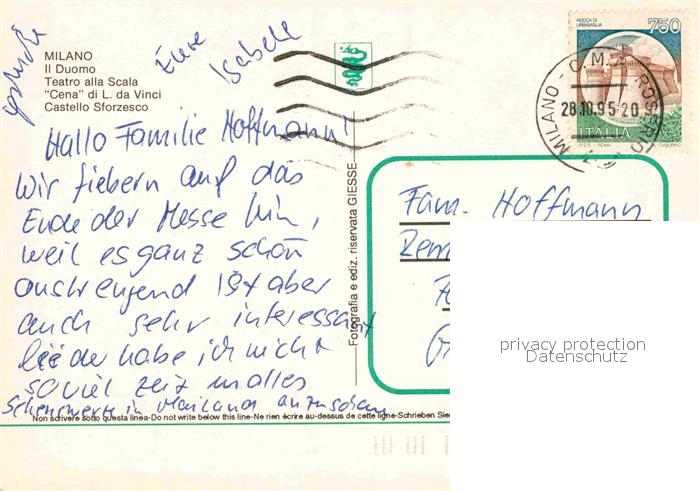 MILANO
Il Duomo
Teatro alla Scala
"Cena" di L. da Vinci
Castello Sforzesco
Eure
Isabell
Hallo Familie Hoffmann!
Wir fiebern auf das
Ende der Messe hin,
weil es ganz schön
anstrengend ist aber
auch sehr interessant
leider habe ich nicht
soviel zeit um alles
Sehenswerte in Mailand anzusehen
Non scrivere sotto questa linea-Do not write below this line-Ne rien écrire au-dessus de cette ligne-Schrieben Sie
Fotografia e ediz. riservata GIESSE
ROCCA DI
URBISAGLIA
750
ITALIA
I.P.Z.S. - ROMA
MILANO - C.M.P. ROSERIO
28.10.95-20
Fam. Hoffmann
privacy protection
Datenschutz